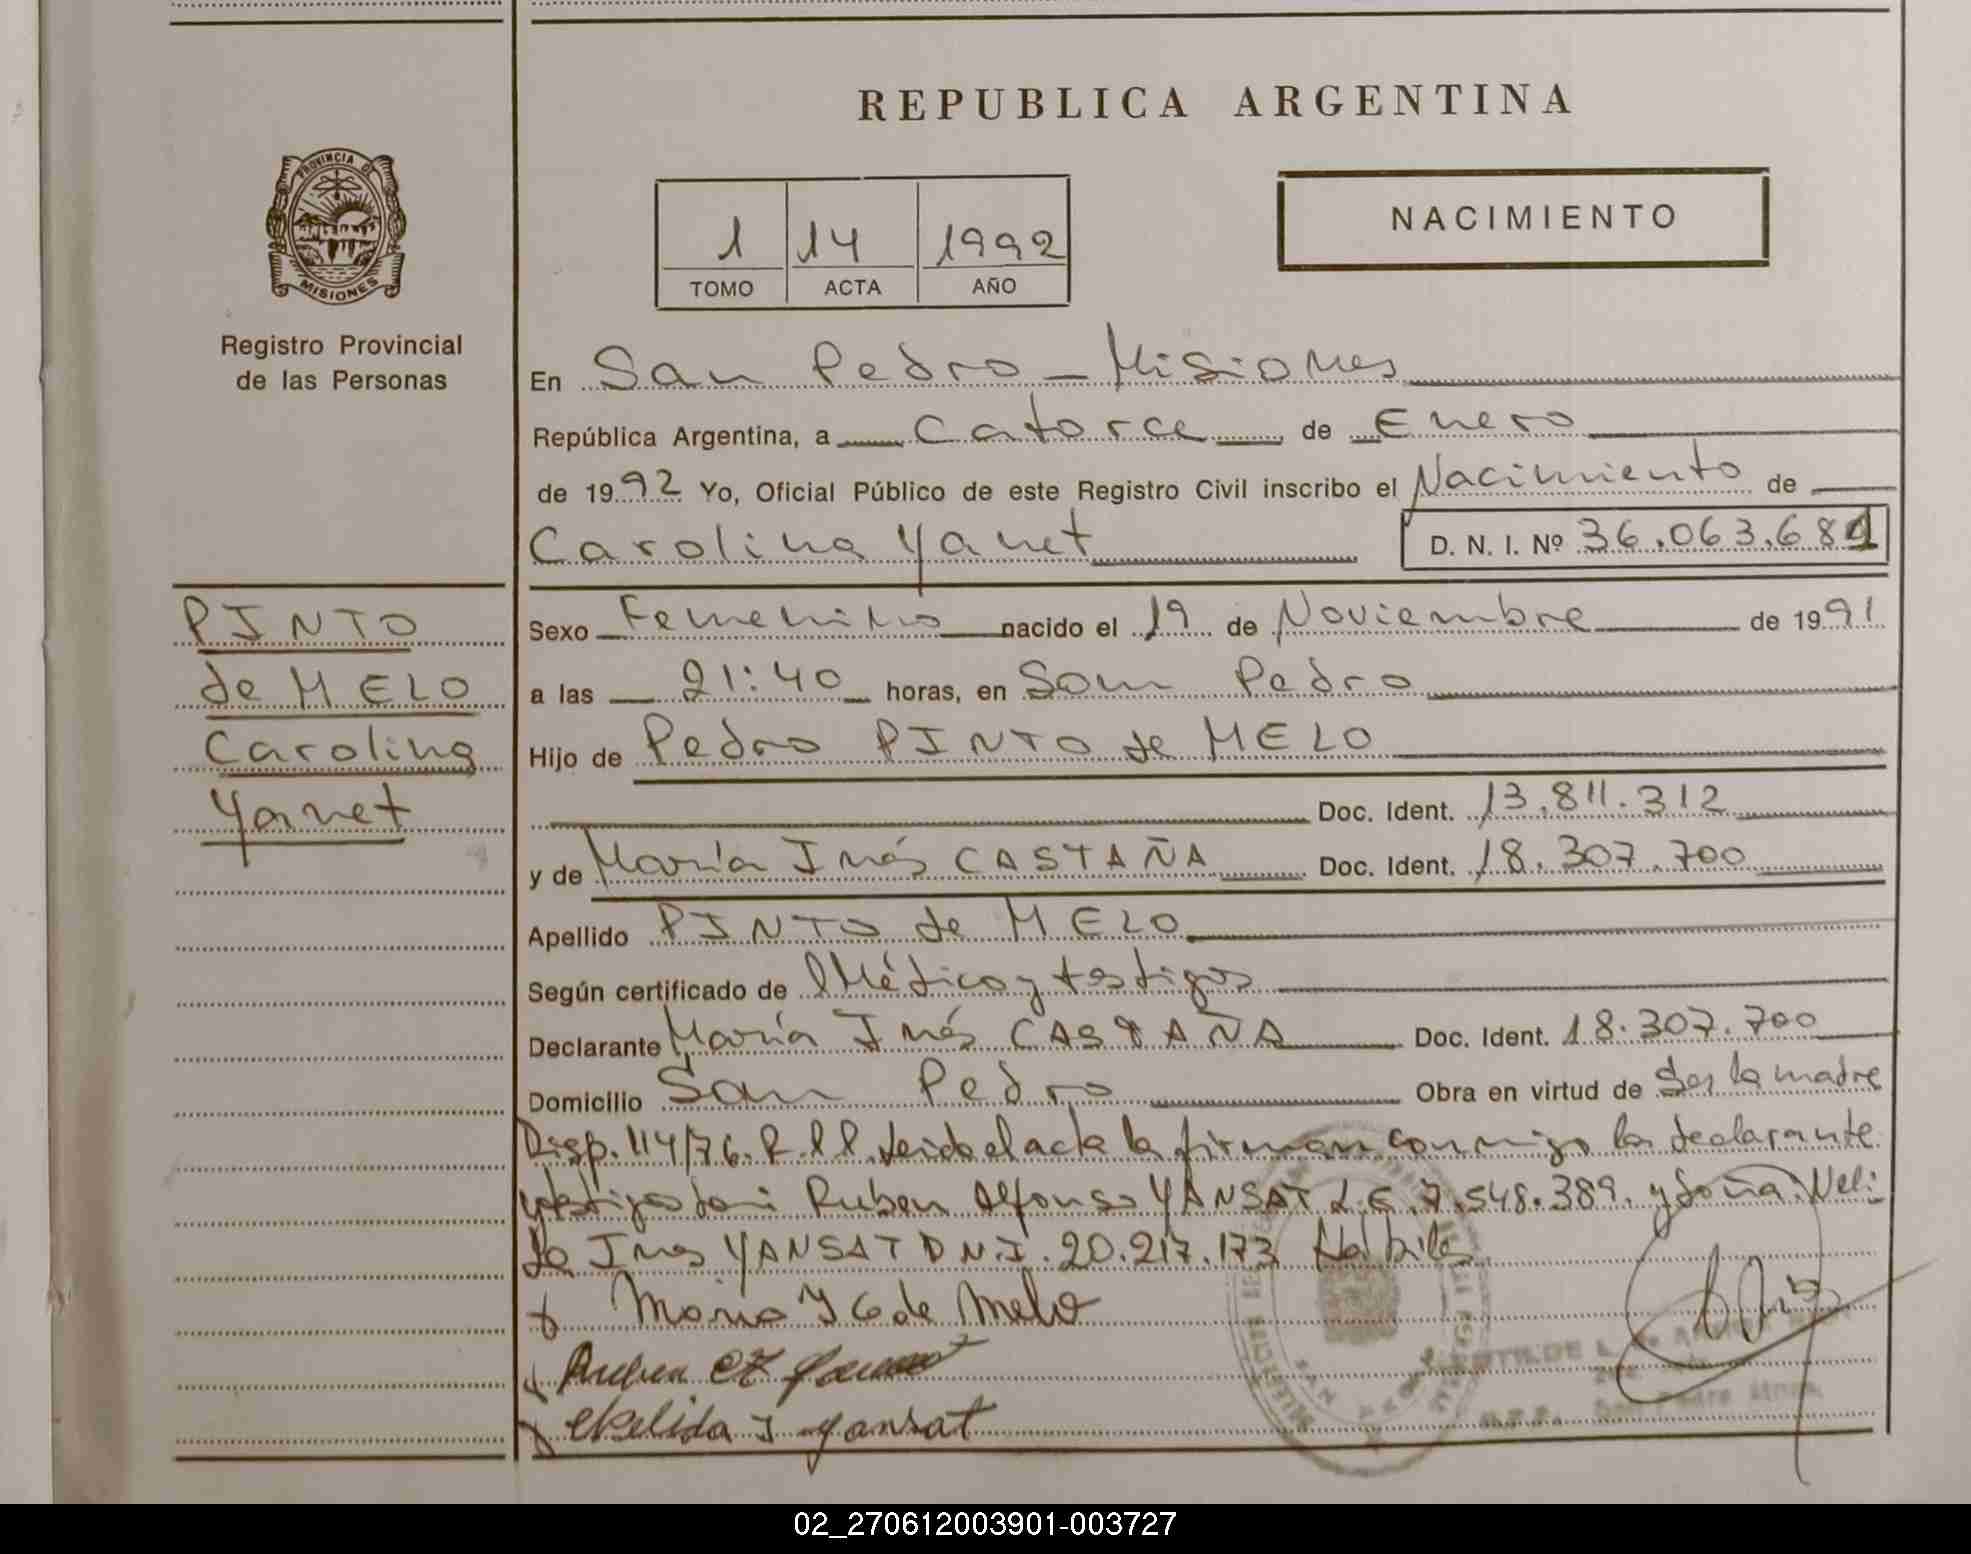 REPUBLICA ARGENTINA
PROVINCIA DE
MISIONES
Registro Provincial
de las Personas
1 14 1992
TOMO ACTA AÑO
NACIMIENTO
En San Pedro - Misiones
República Argentina, a Catorce de Enero
de 1992 Yo, Oficial Público de este Registro Civil inscribo el Nacimiento de
Carolina Yanet D. N. I. Nº 36.063.681
PINTO
de MELO
Carolina
Yanet
Sexo Femenino nacido el 19 de Noviembre de 1991
a las 21:40 horas, en San Pedro
Hijo de Pedro PINTO de MELO
Doc. Ident. 13.811.312
y de María Inés CASTAÑA Doc. Ident. 18.307.700
Apellido PINTO de MELO
Según certificado de Médico y testigos
Declarante María Inés CASTAÑA Doc. Ident. 18.307.700
Domicilio San Pedro Obra en virtud de Ser la madre
Disp. 114/76. R.P.P. Leida el acta la firman conmigo la declarante
y testigos don Ruben Alfonso YANSAT L.E. 7.548.389. y doña Neli
da Ines YANSAT D N.I. 20.217.173 Habiles
Maria I C de Melo
Ruben
Nelida I Yansat
SAN PEDRO
02_270612003901-003727